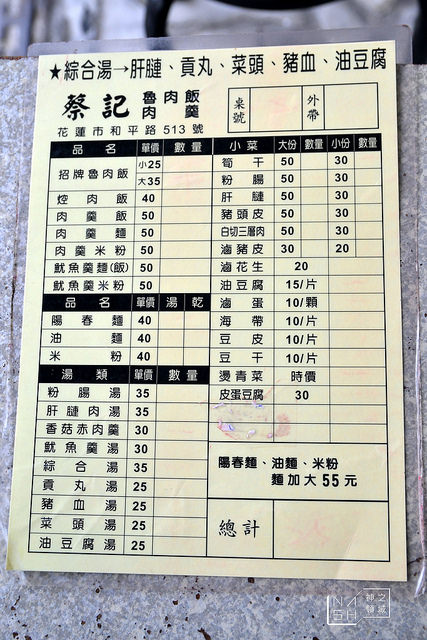 ★綜合湯→肝腱、貢丸、菜頭、豬血、油豆腐
蔡記 魯肉飯
肉羹
桌號
外帶
花蓮市和平路513號
品名 單價 數量
招牌魯肉飯 小25
大35
焢肉飯 40
肉羹飯 50
肉羹麵 50
肉羹米粉 50
魷魚羹麵(飯) 50
魷魚羹米粉 50
品名 單價 湯 乾
陽春麵 40
油麵 40
米粉 40
湯類 單價 數量
粉腸湯 35
肝腱肉湯 35
香菇赤肉羹 30
魷魚羹湯 30
綜合湯 35
貢丸湯 25
豬血湯 25
菜頭湯 25
油豆腐湯 25
小菜 大份 數量 小份 數量
筍干 50 30
粉腸 50 30
肝腱 50 30
豬頭皮 50 30
白切三層肉 50 30
滷豬皮 30 20
滷花生 20
油豆腐 15/片
滷蛋 10/顆
海帶 10/片
豆皮 10/片
豆干 10/片
燙青菜 時價
皮蛋豆腐 30
陽春麵、油麵、米粉
麵加大55元
總計
神之領域